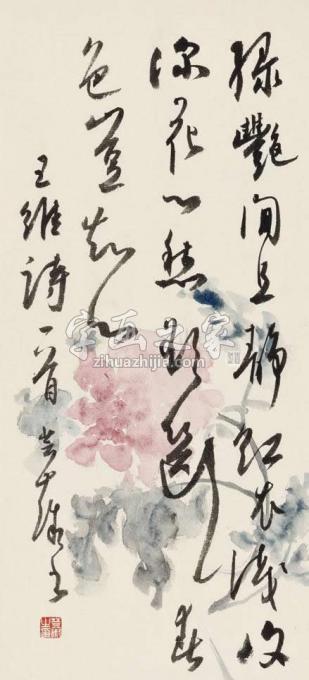 绿艷闲且静红衣浅复
深花心愁欲断春
色豈知心
王维诗一首
字画之家
zihuazhijia.com